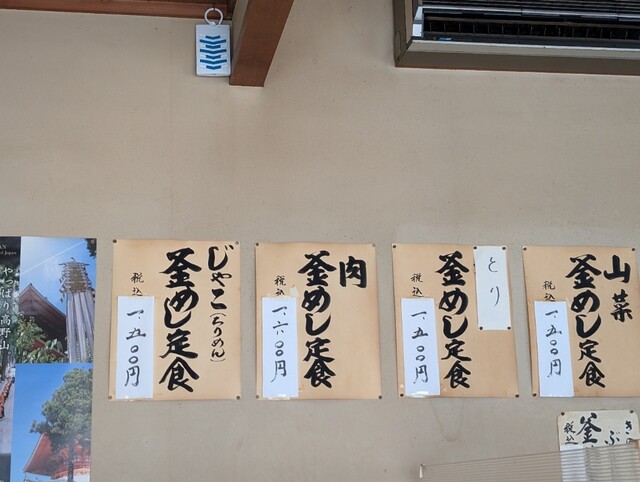 山菜
釜めし定食
税込
一、五〇〇円
とり
釜めし定食
税込
一、五〇〇円
肉
釜めし定食
税込
一、六〇〇円
じゃこ(ちりめん)
釜めし定食
税込
一、五〇〇円
釜
税込